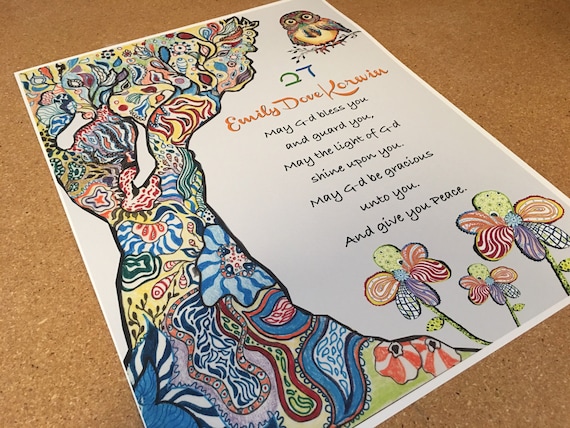 דב
Emily Dove Korwin
May G-d bless you
and guard you,
May the light of G-d
shine upon you.
May G-d be gracious
unto you.
And give you Peace.